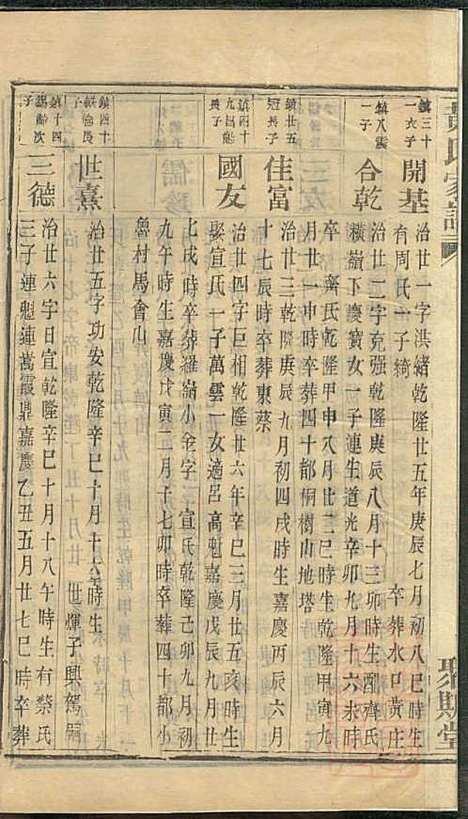 黄氏家譜
聚斯堂
鎮三十
一六子
開基
治廿一字洪緒乾隆廿五年庚辰七月初八巳時生
有周氏一子綺
卒葬水口黃庄
鎮八震
一子
合乾
治廿二字克强乾隆庚辰八月十三卯時生配齊氏
橫嶺下慶寶女一子連生道光辛卯九月十六未時
卒
齊氏乾隆甲申八月廿二巳時生乾隆甲寅九
月廿一申時卒葬四十都桐樹山地塔
鎮廿五
短長子
佳富
治廿三乾隆庚辰九月初四戌時生嘉慶丙辰六月
十七辰時卒葬東蔡
鎮四十
九昌魁
長子
國友
治廿四字巨相乾隆廿六年辛巳三月廿五亥時生
娶宣氏一子萬雲一女適呂高魁嘉慶戊辰九月初
七戌時卒葬羅嶺小金字
宣氏乾隆己卯六月初
九午時生嘉慶戊寅二月子七卯時卒葬四十都小
魯村馬會山
鎮四十
長
子
世熹
治廿五字功安乾隆辛巳十月十六時生
世燀子興駕嗣
鎮十四
錫齡次
子
三德
治廿六字日宣乾隆辛巳十月十八午時生有蔡氏
三子連魁連萬霞鼎嘉慶乙丑五月廿七巳時卒葬